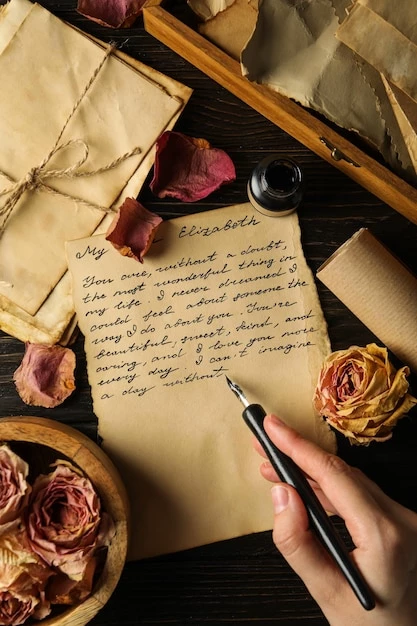 My Elizabeth
You are, without a doubt,
the most wonderful thing in
my life. I never dreamed I
could feel about someone the
way I do about you. You're
beautiful, sweet, kind, and
caring, and I love you more
every day. I can't imagine
a day without